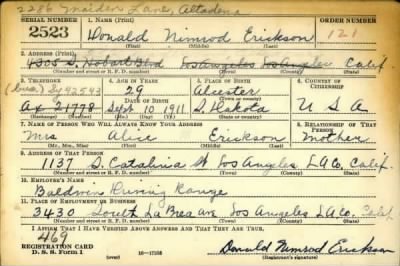 2286 Maiden Lane, Altadena
SERIAL NUMBER 1. NAME (Print) ORDER NUMBER (Print)
2523 Donald Nimrod Erickson 121
(First) (Middle) (Last)
2. ADDRESS (Print)
4305 S. Hobart Blvd Los Angeles Los Angeles Calif.
(Number and street or R. F. D. number) (Town) (County) (State)
3. TELEPHONE 4. AGE IN YEARS 5. PLACE OF BIRTH 6. COUNTRY OF CITIZENSHIP
Sy 92543 29 Alcester
DATE OF BIRTH (Town or county)
Ax 21778 Sept 10 1911 S. Dakota U S A
(Exchange) (Number) (Mo.) (Day) (Yr.) (State or country)
7. NAME OF PERSON WHO WILL ALWAYS KNOW YOUR ADDRESS 8. RELATIONSHIP OF THAT PERSON
Mrs Alice Erickson Mother
(Mr., Mrs., Miss) (First) (Middle) (Last)
9. ADDRESS OF THAT PERSON
1137 S. Catalina St Los Angeles L A Co. Calif.
(Number and street or R. F. D. number) (Town) (County) (State)
10. EMPLOYER'S NAME
Baldwin Driving Range
11. PLACE OF EMPLOYMENT OR BUSINESS
3430 South La Brea av. Los Angeles L A Co. Calif.
(Number and street or R. F. D. number) (Town) (County) (State)
I AFFIRM THAT I HAVE VERIFIED ABOVE ANSWERS AND THAT THEY ARE TRUE.
469
REGISTRATION CARD
D. S. S. Form 1 (over) 16—17105 Donald Nimrod Erickson
(Registrant's signature)